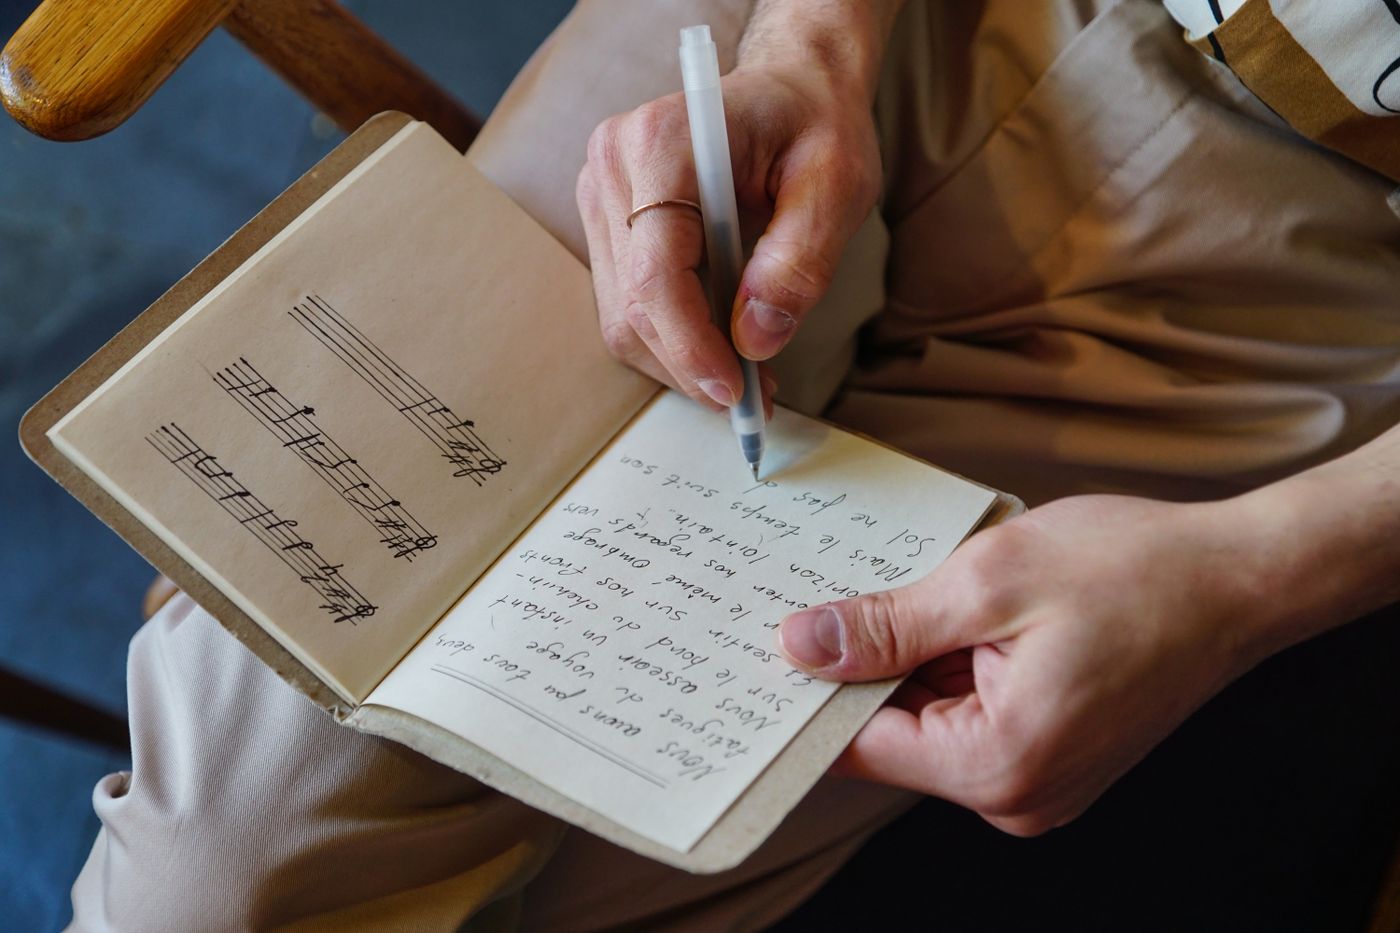 Nous avons pu tous deux,
fatigues du voyage
Nous asseoir un instant
Sur le bord du chemin-
Et sentir sur nos fronts
le même, Ombrage
nos regards vers
lointain.
Mais le temps suit son
Sol ne pas